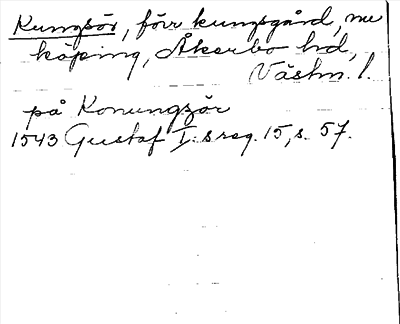 Kungsör, förr kungsgård, nu
köping, Åkerbo hd,
Västm. l.
på Konungzör
1543 Gustaf I:s reg. 15, s. 57.